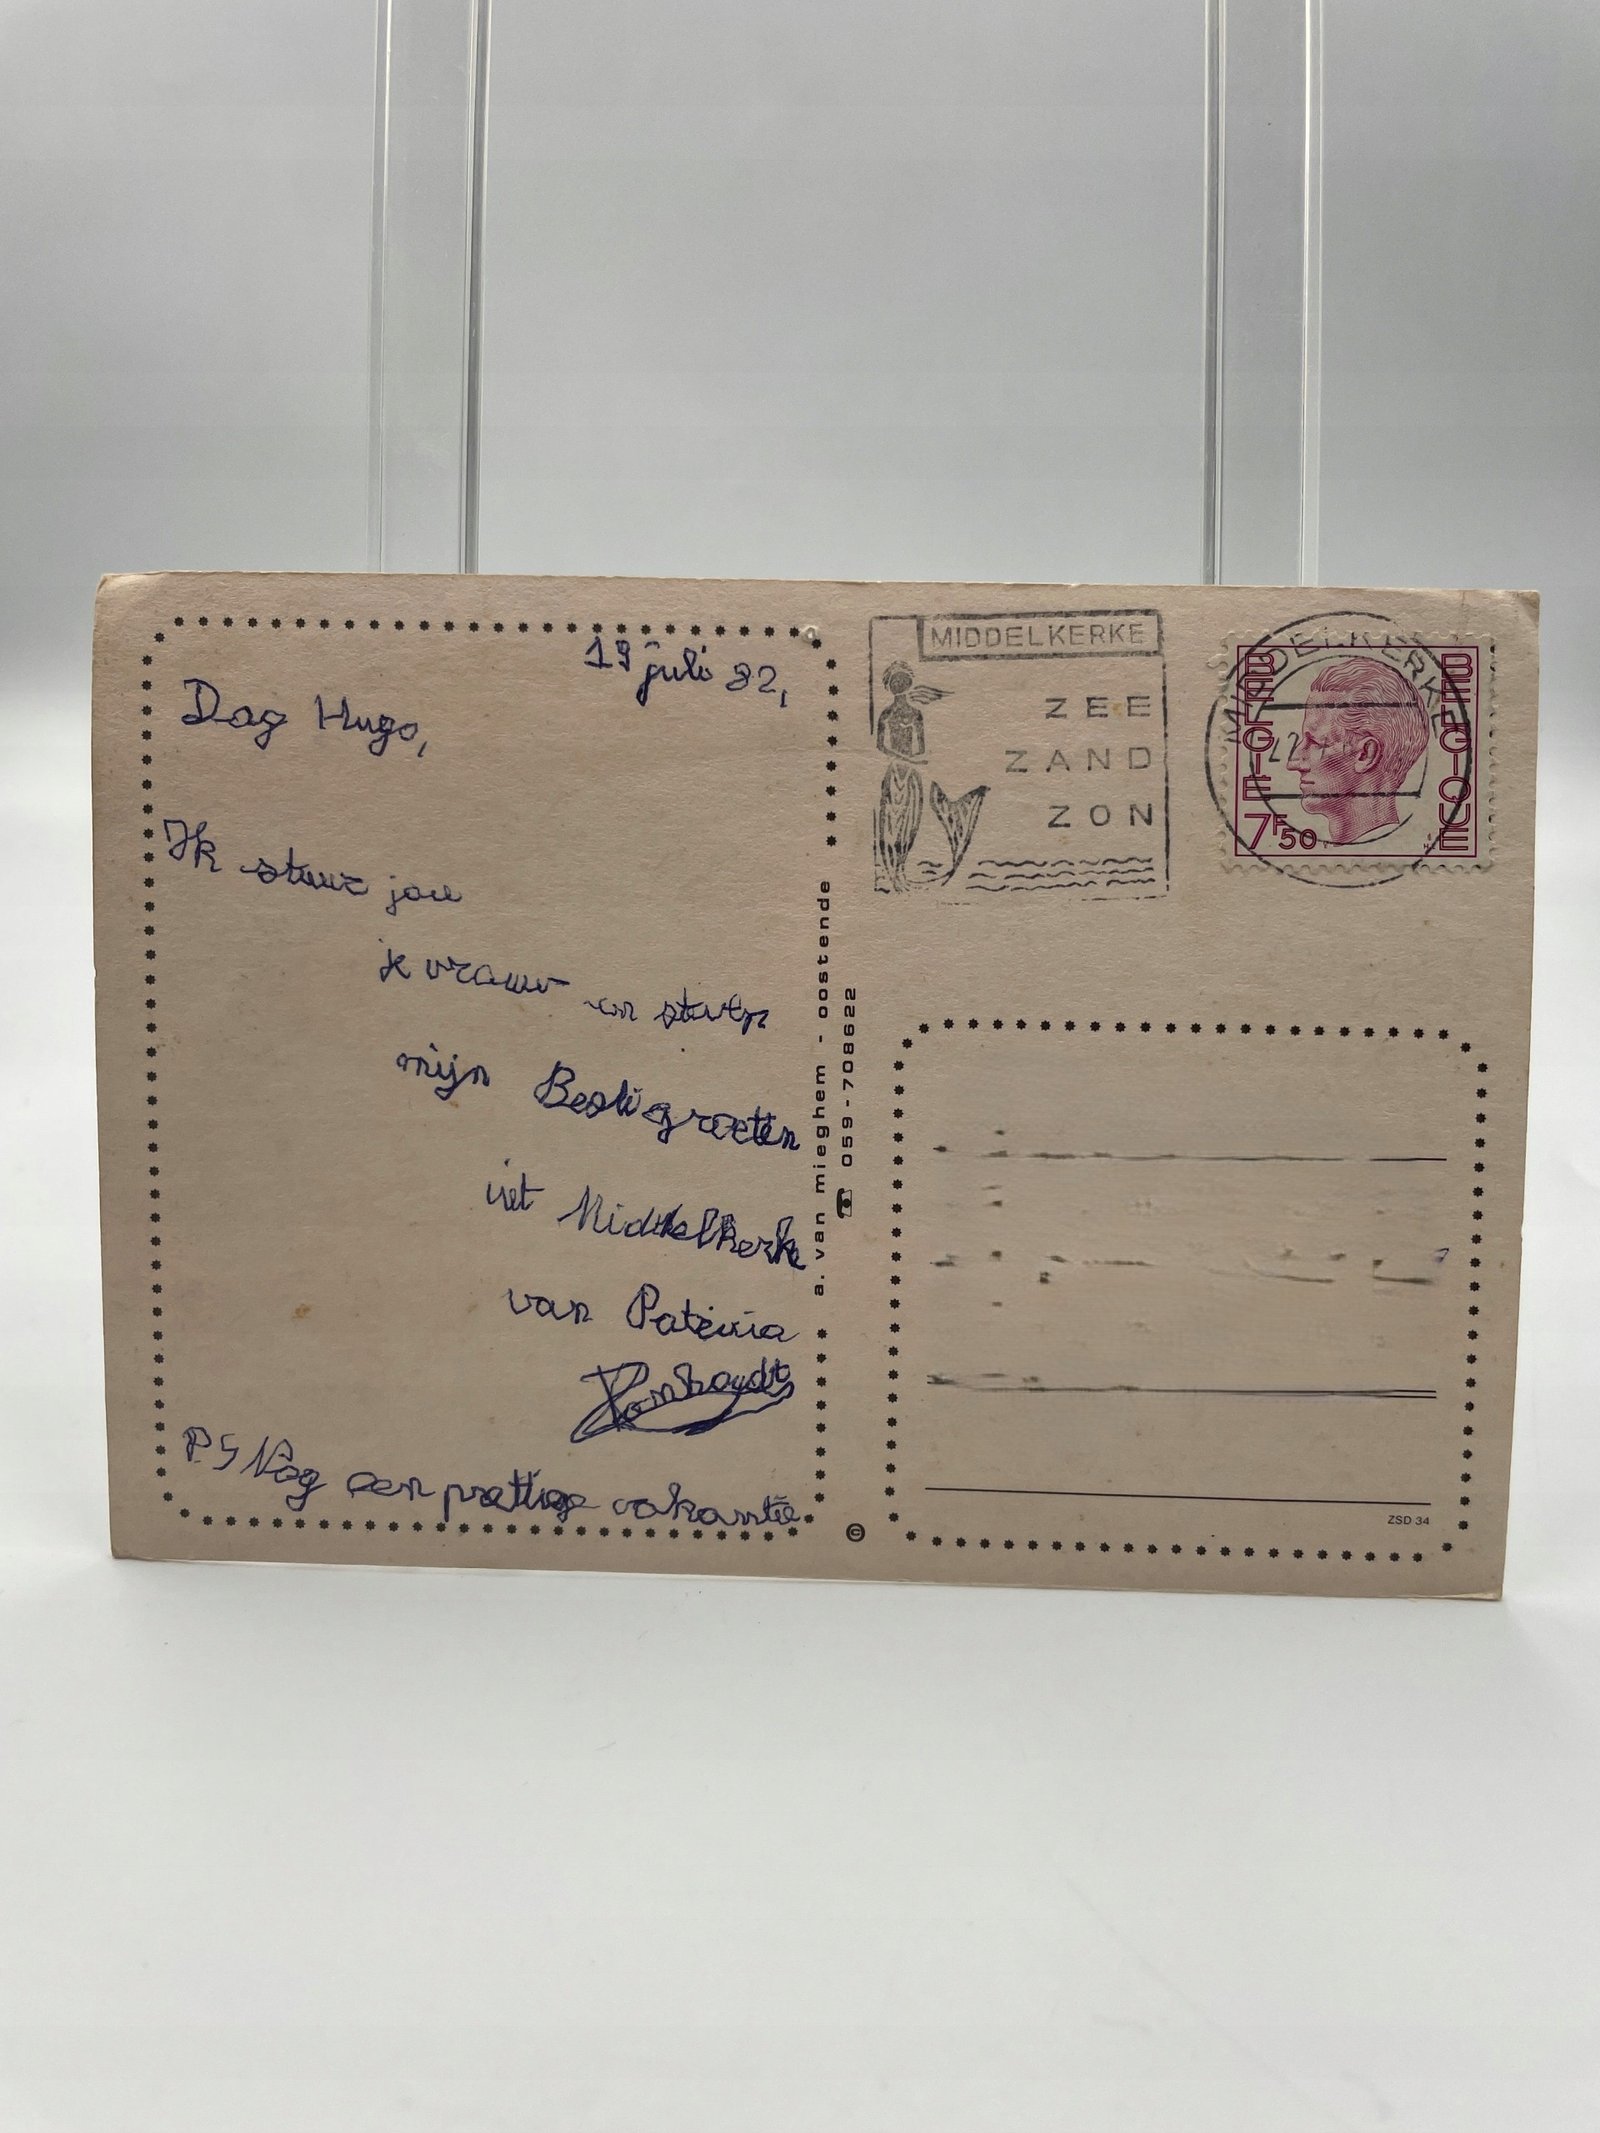 19 juli 82,
Dag Hugo,
Ik stuur jou
je vrouw en
mijn Besti groeten
uit Middelkerke
van Patricia
PS Nog een prettige vakantie
a. van mieghem - oostende
059-708622
©
MIDDELKERKE
ZEE
ZAND
ZON
MIDDELKERKE
BELGIE
BELGIQUE
7F50
ZSD 34